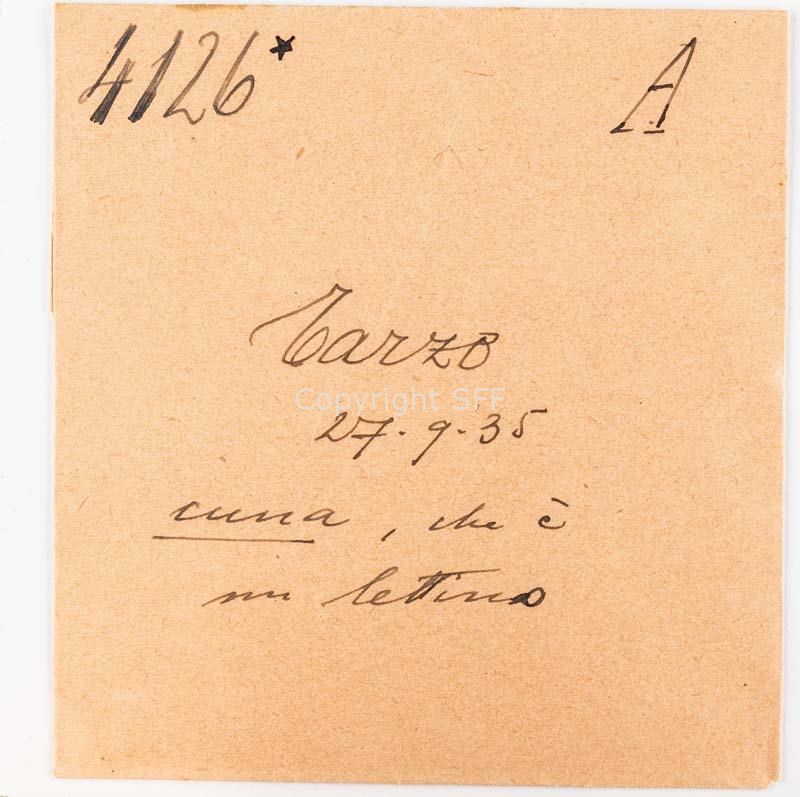 4126* A
Tarzo
Copyright SFF
27-9-35
cuna, che è
un lettino